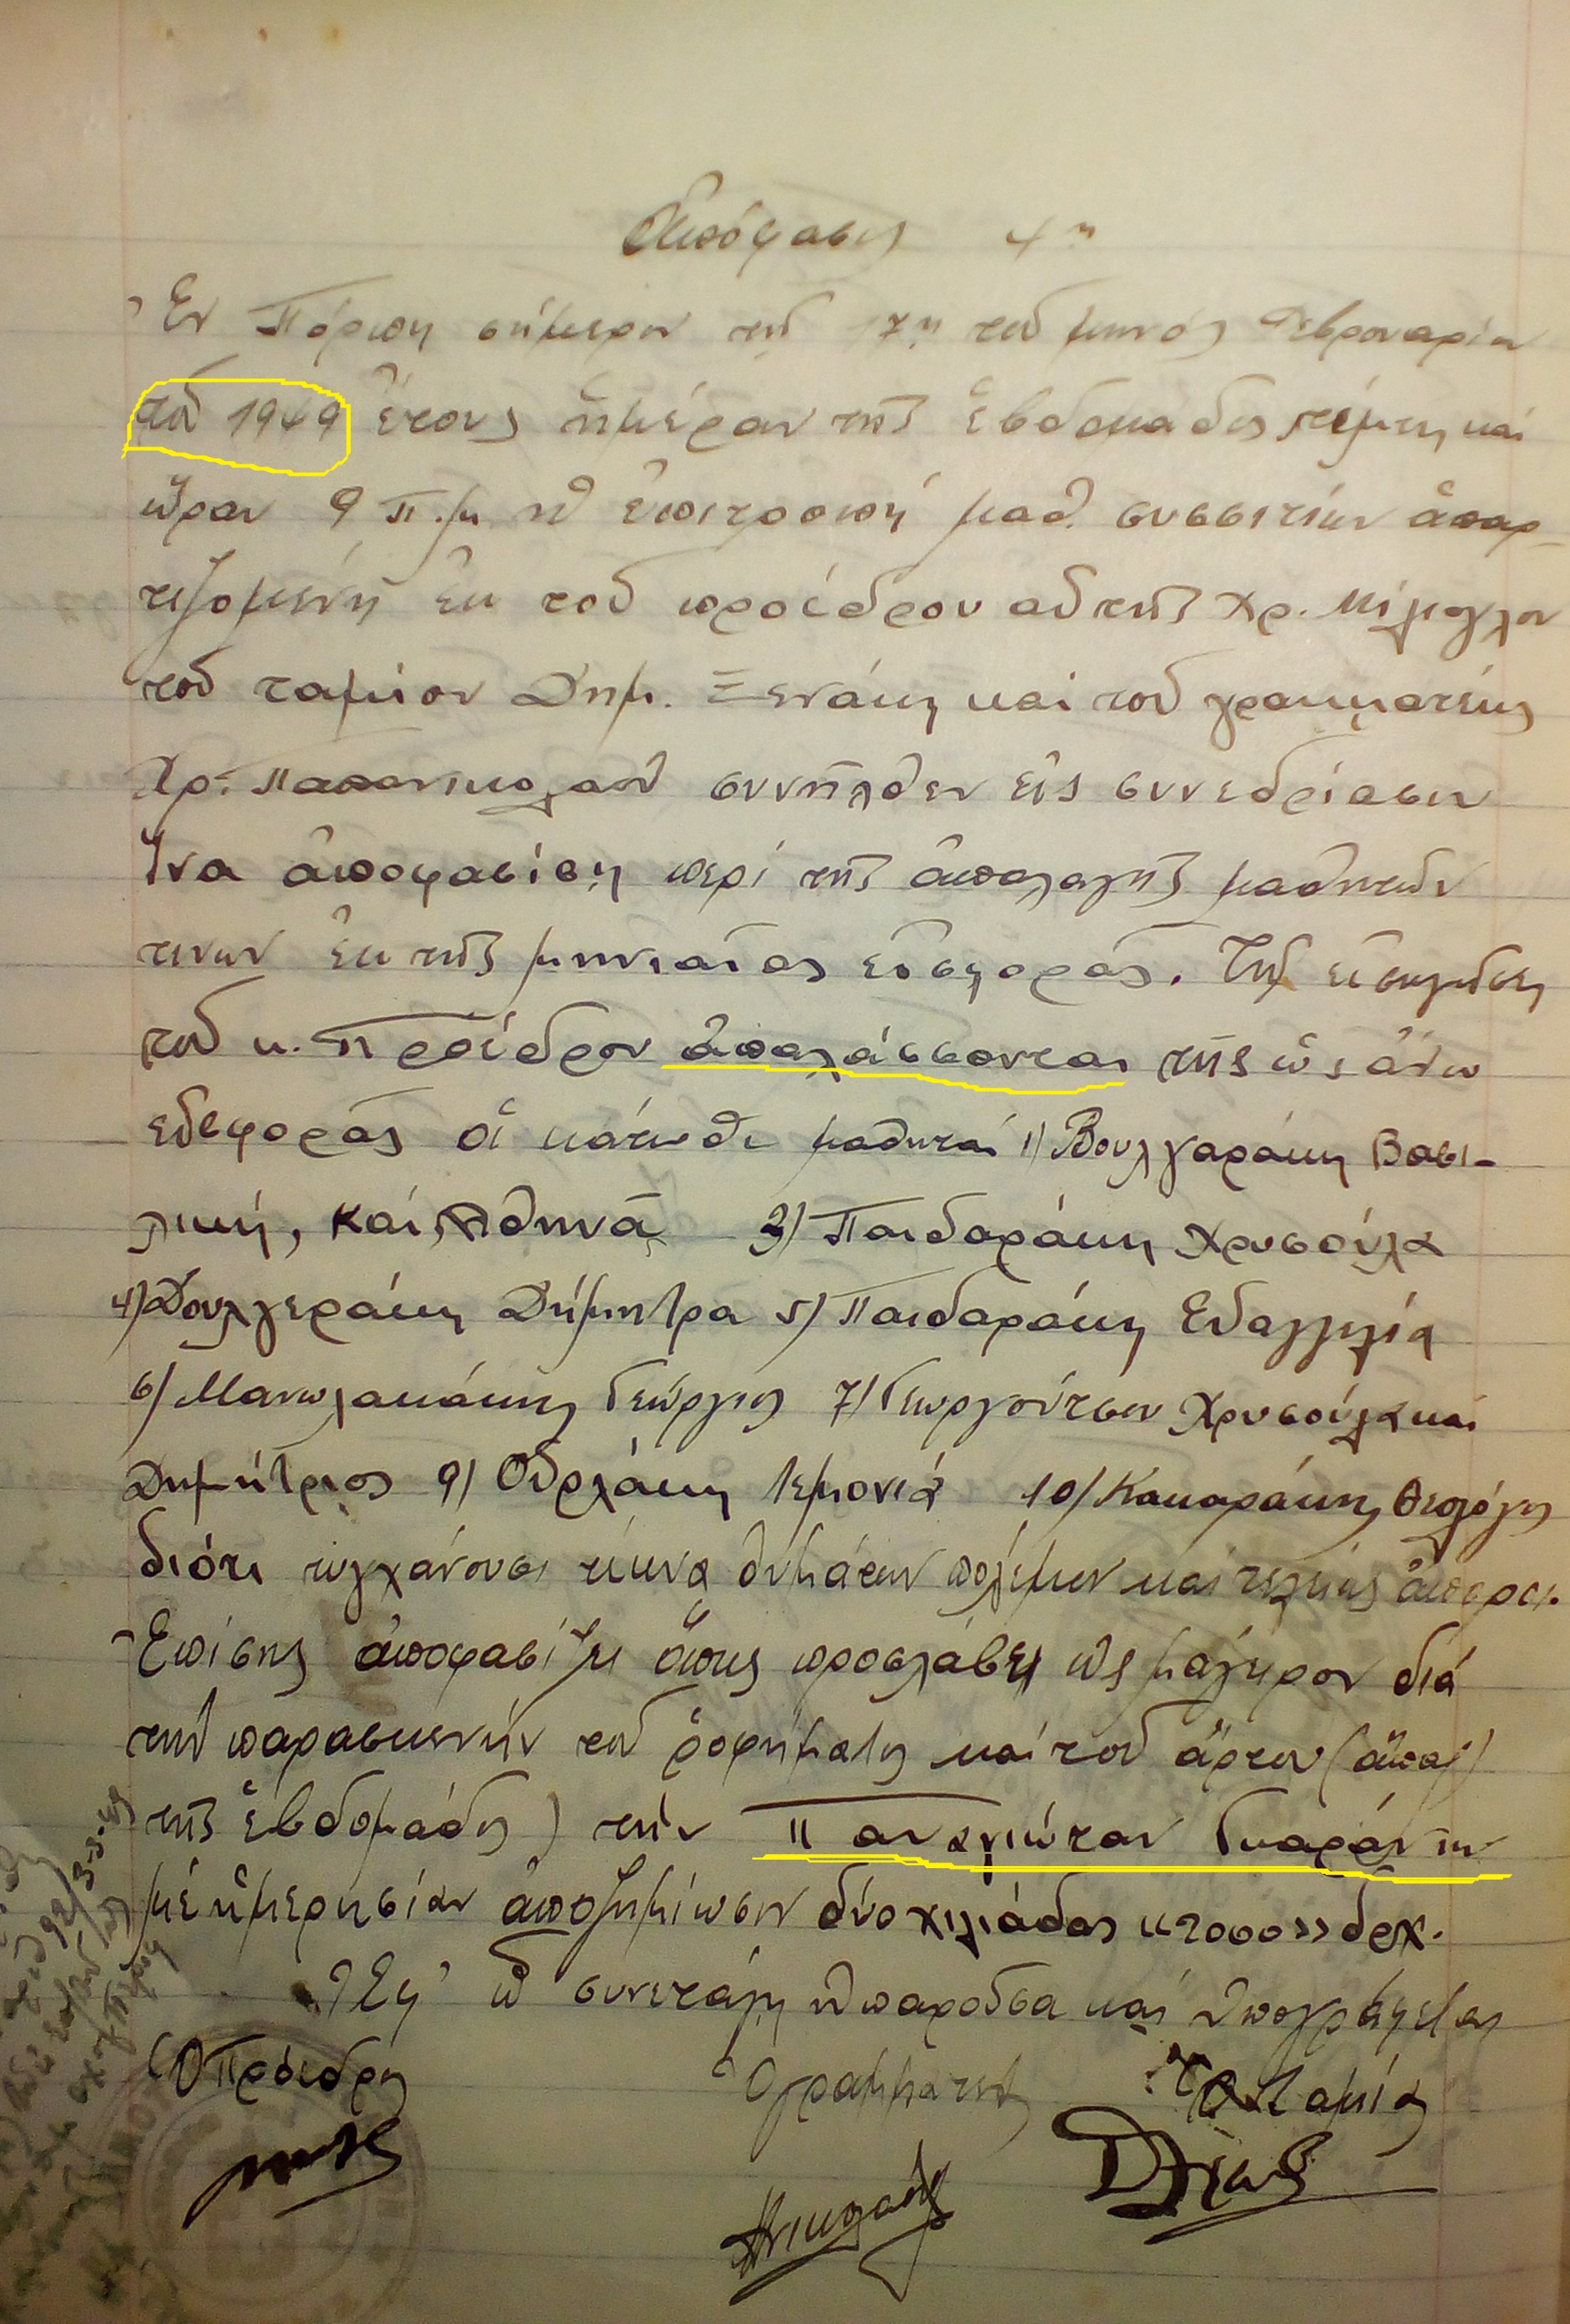 Ἀπόφασις 4η
Ἐν Πόρπη σήμερον τῇ 17ῃ τοῦ μηνός Φεβρουαρίου
τοῦ 1949 ἔτους ἡμέραν τῆς ἑβδομάδος πέμπτη καί
ὥραν 9 π.μ. ἡ ἐπιτροπή μαθ. συσσιτίων ἀπαρ-
τιζομένη ἐκ τοῦ προέδρου αὐτῆς Χρ.
τοῦ ταμίου Δημ. Ξενάκη καί τοῦ γραμματέως
Χρ. Παπανικολάου συνῆλθεν εἰς συνεδρίασιν
ἵνα ἀποφασίσῃ περί τῆς ἀπαλαγῆς μαθητῶν
τινων ἐκ τῆς μηνιαίας εἰσφορᾶς. Τῇ εἰσηγήσει
τοῦ κ. Προέδρου ἀπαλάσσονται τῆς ὡς ἄνω
εἰσφορᾶς οἱ κάτωθι μαθηταί 1) Βουλγαράκη Βασι-
λική, καί Ἀθηνᾶ 3) Παιδαράκη Χρυσούλα
4) Δουλγεράκη Δήμητρα 5) Παιδαράκη Εὐαγγελία
6) Μανωλακάκης Γεώργιος 7) Γεωργούτσου Χρυσούλα και
Δημήτριος 9) Οὐρλάκη Λεμονιά 10) Κακαράκης Θεολόγος
διότι τυγχάνουσι τέκνα θυμάτων πολέμου και τελείως ἄποροι.
Ἐπίσης ἀποφασίζει ὅπως προσλάβει ὡς μάγειρον διά
τήν παρασκευήν τοῦ ῥοφήματος καί τοῦ ἄρτου (ἅπαξ
τῆς ἑβδομάδος) τήν Παναγιώταν
μέ ἡμερησίαν ἀποζημίωσιν δύο χιλιάδας δρχ.
Ἐφ' ᾧ συνετάγη ἡ παροῦσα καί ὑπογράφεται
Ὁ Πρόεδρος Ὁ γραμματεύς Ὁ Ταμίας